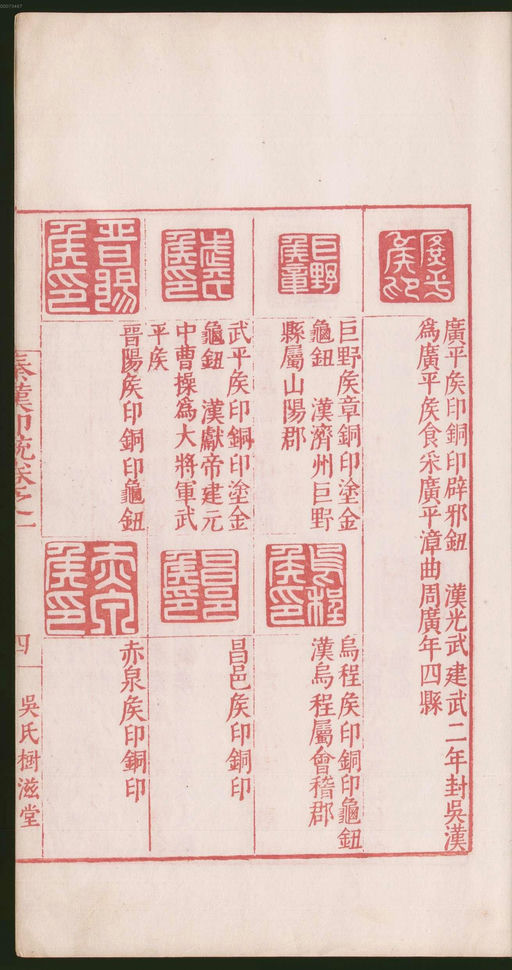 廣平侯印
廣平侯印銅印辟邪鈕 漢光武建武二年封吳漢
為廣平侯食采廣平漳曲周廣年四縣
巨野侯章
巨野侯章銅印塗金
龜鈕 漢濟州巨野
縣屬山陽郡
烏程侯印
烏程侯印銅印龜鈕
漢烏程屬會稽郡
武平侯印
武平侯印銅印塗金
龜鈕 漢獻帝建元
中曹操為大將軍武
平侯
昌邑侯印
昌邑侯印銅印
晉陽侯印
晉陽侯印銅印龜鈕
赤泉侯印
赤泉侯印銅印
秦漢印統卷之一
四
吳氏樹滋堂
00073447